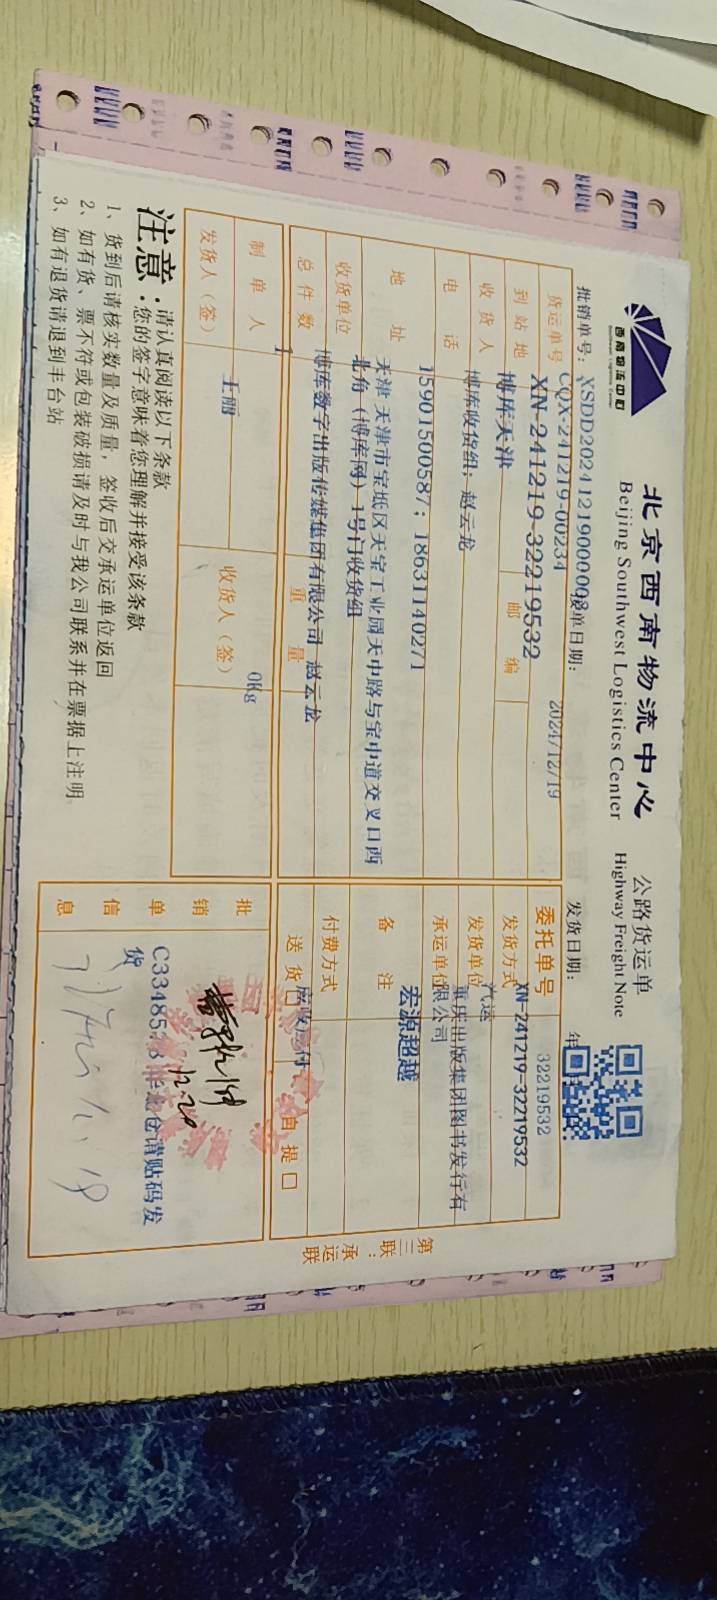 西南物流中心
Southwest Logistics Center
北京西南物流中心
公路货运单
Beijing Southwest Logistics Center
Highway Freight Note
批销单号: XSDD20241219000008
接单日期: 2024/12/19
发货日期: 年
货运单号 CQX-241219-00234
XN-241219-32219532
委托单号 32219532
XN-241219-32219532
到站地 博库天津
邮编
发货方式 汽运
收货人 博库收货组; 赵云龙
发货单位 重庆出版集团图书发行有限公司
电话 15901500587; 18631140271
承运单位 宏源超越
地址 天津 天津市宝坻区天宝工业园天中路与宝中道交叉口西
北角(博库网)1号门收货组
备注
收货单位 博库数字出版传媒集团有限公司 赵云龙
付费方式 应收应付
总件数 1
重量 0Kg
送货□
自提□
制单人 王丽
发货人(签)
收货人(签)
批销单信息
货
仓请贴码发
12.20
第三联:承运联
注意:
请认真阅读以下条款
您的签字意味着您理解并接受该条款
1、货到后请核实数量及质量,签收后交承运单位返回
2、如有货、票不符或包装破损请及时与我公司联系并在票据上注明
3、如有退货请退到丰台站